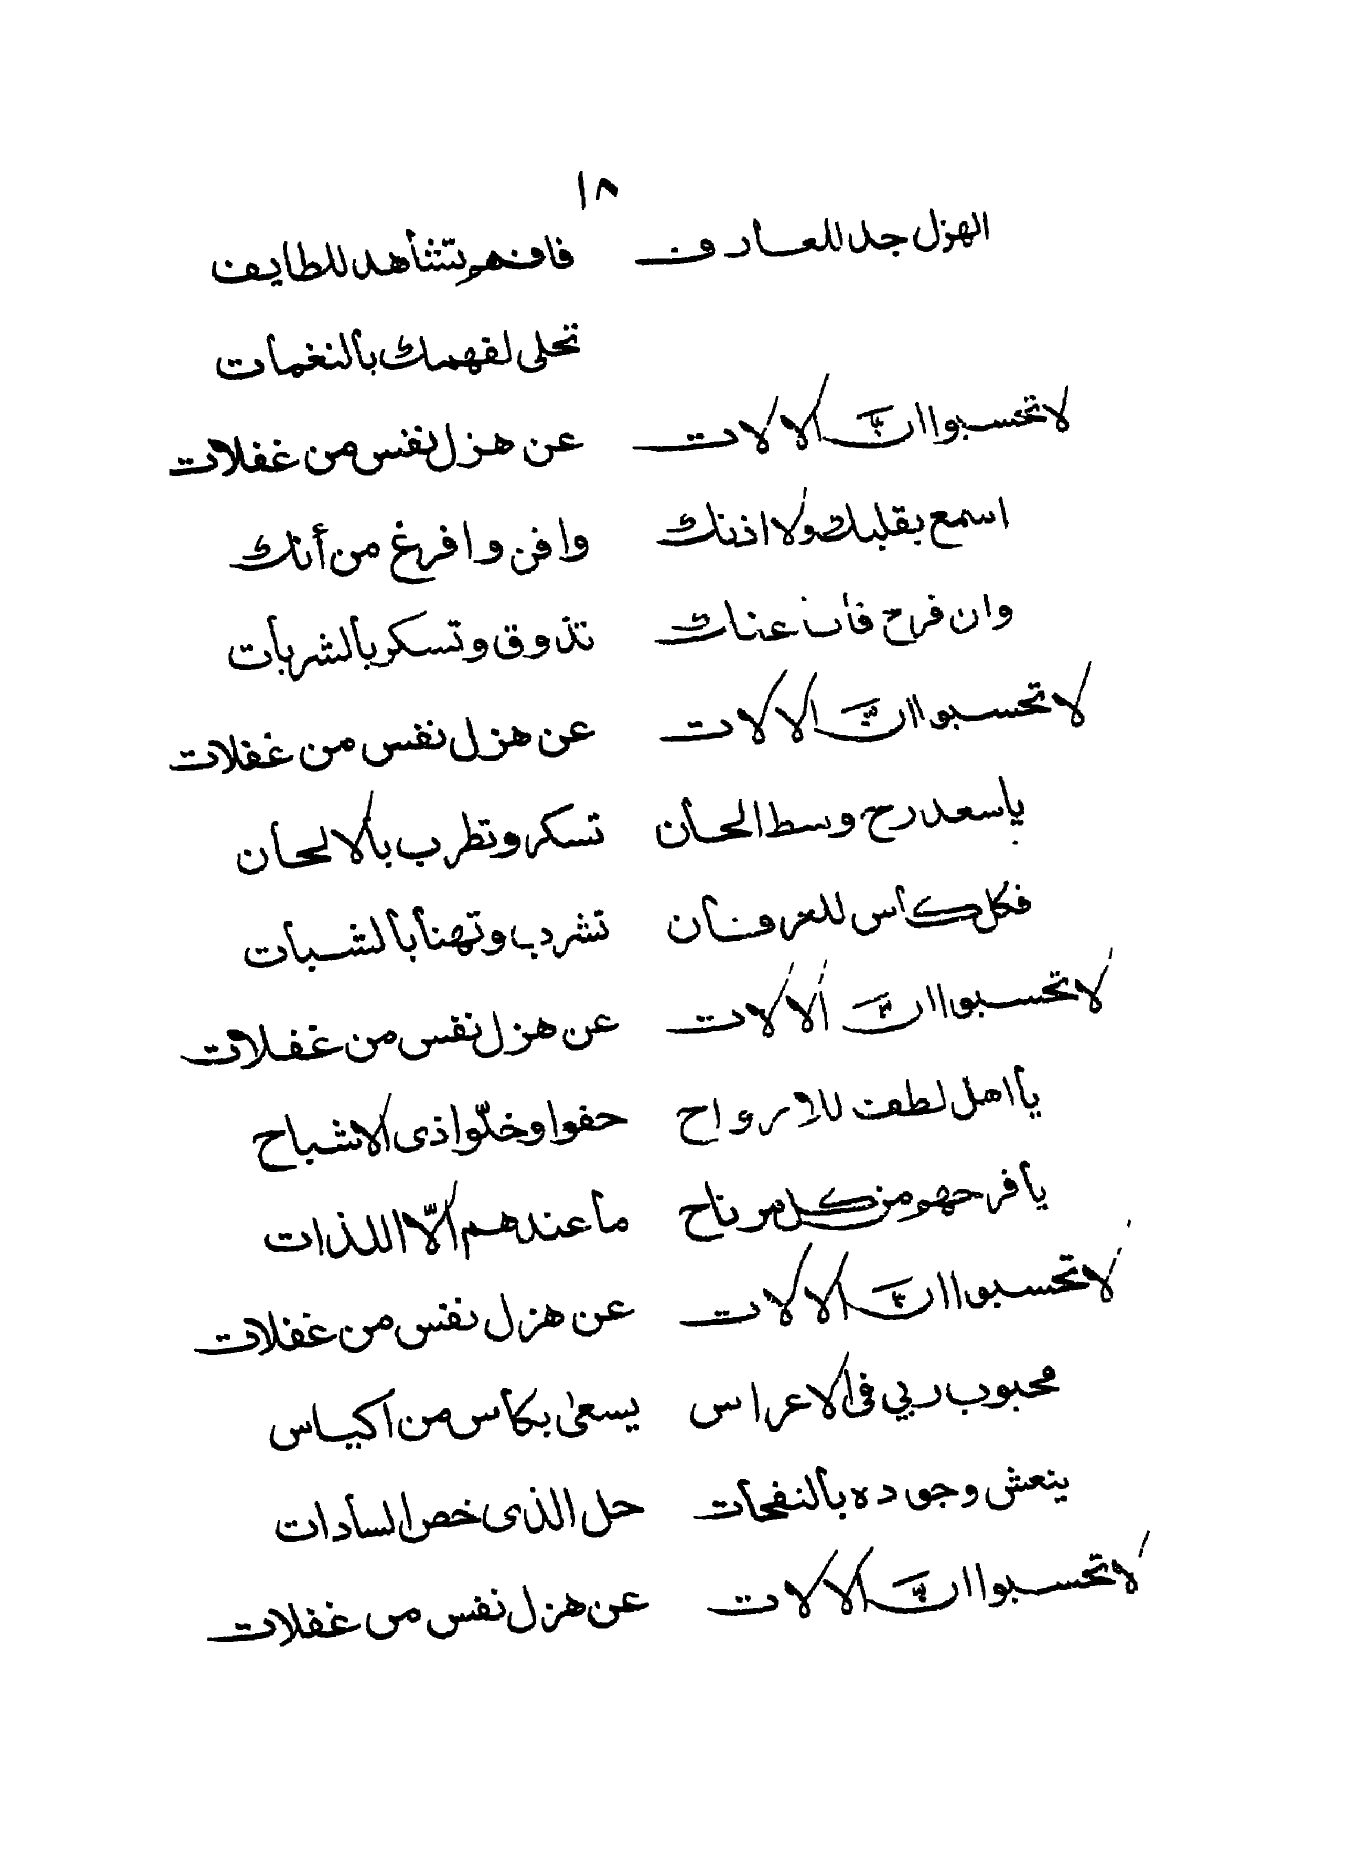 ١٨
الهزل جد للعارف فافهم تشاهد للطايف
تحلى لفهمك بالنغمات
لا تحسبوا ان الالات عن هزل نفس من غفلات
اسمع بقلبك ولا اذنك وافن وافرغ من أنك
وان فرح فان عناك تذوق وتسكر بالشربات
لا تحسبوا ان الالات عن هزل نفس من غفلات
يا سعد رح وسط الحان تسكر وتطرب بالالحان
فكل كأس للعرفان تشرب وتهنا بالشبات
لا تحسبوا ان الالات عن هزل نفس من غفلات
يا اهل لطف للارواح حفوا وخلّوا ذى الاشباح
يا فرحهم من كل مرتاح ما عندهم الّا اللذات
لا تحسبوا ان الالات عن هزل نفس من غفلات
محبوب ربي في الاعراس يسعى بكاس من اكياس
ينعش وجوده بالنفحات حل الذى خص السادات
لا تحسبوا ان الالات عن هزل نفس من غفلات